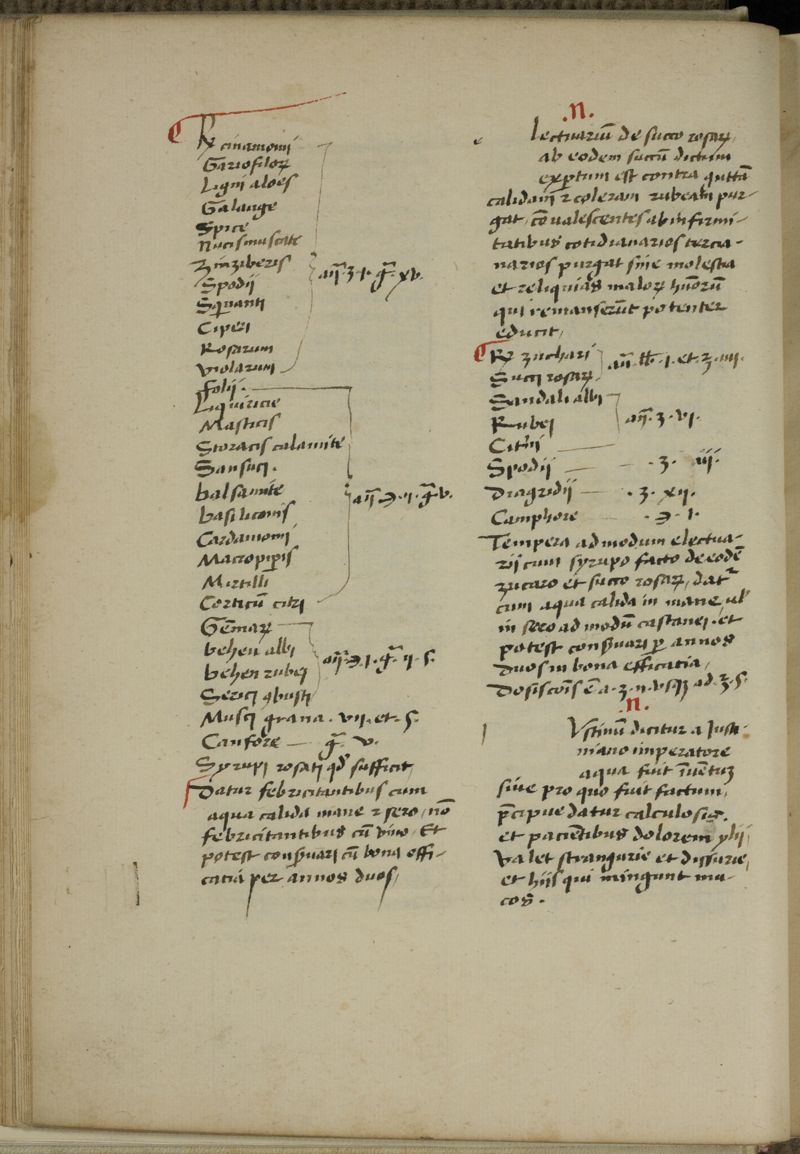 ℞ cinamomi
Gariofiloꝝ
Ligni aloes
Galange
Spice
Nucis muscate
Zinziberis
Spodij
Sqͥnanti
Ciperi
Rosarum
Violarum
añ ʒ i. gᷓ xv.
folij.
Liquiricie
Masticis
Storacis calamite
Sansuci.
balsamite
basiliconis
Cardamomi
Macropiꝑis
Mirtilli
Corticū citri
añ ℈ ij gᷓ v.
Gēmaꝝ
behen albi
behen rubei
Serici ꝯbusti
añ ℈ i. gᷓ ij s.
Musci grana. vij. et. s.
Canfore gᷓ v.
Syrupi rosati qd sufficit
Datur febricitantibus cum
aqua calida mane ⁊ sero, nō
febricitantibus cū vino. Et
potest conseruari cū bona effi-
catia per annos duos,
.n.
e lectuariū de succo rosaꝝ,
ab eodem succū dictum
exꝑtum est contra guttā
calidam ⁊ coleram rubeam pur-
gat, cōualescentes ab infirmi-
tatibus cotidianarios tercia-
narios purgat sine molestia
et reliquias maloꝝ humorū
qui remanserūt potenter
educit,
℞ zuchari
Succi rosaꝝ
añ ℔. i. et. ʒ. iiij.
Sandali albi
Rubei
añ. ʒ. vi.
Citrij
Spodij . ʒ. iij.
Dragridij . ʒ. xij.
Camphore . ℈. i.
Tempera ad modum electua-
rij cum syrupo facto de eodē
zucaro et succo rosaꝝ, datᷣ
cum aqua calida in mane, uł
in sero ad modū castanei. et
potest conseruari ꝑ annos
duos in bona efficatia,
Dosis cōis ē a. ʒ. ij. usqꝫ ad. ʒ. s.
.n.
I ustinū dicitur a Justi-
niano imperatore
a qua fuit īuentuꝫ
siue pro quo fiut factum,
p̄cipue datur calculosis.
et pacientibus dolorem ylij
valet strangurie et dissurie,
et hijs qui mingunt mu-
cos.